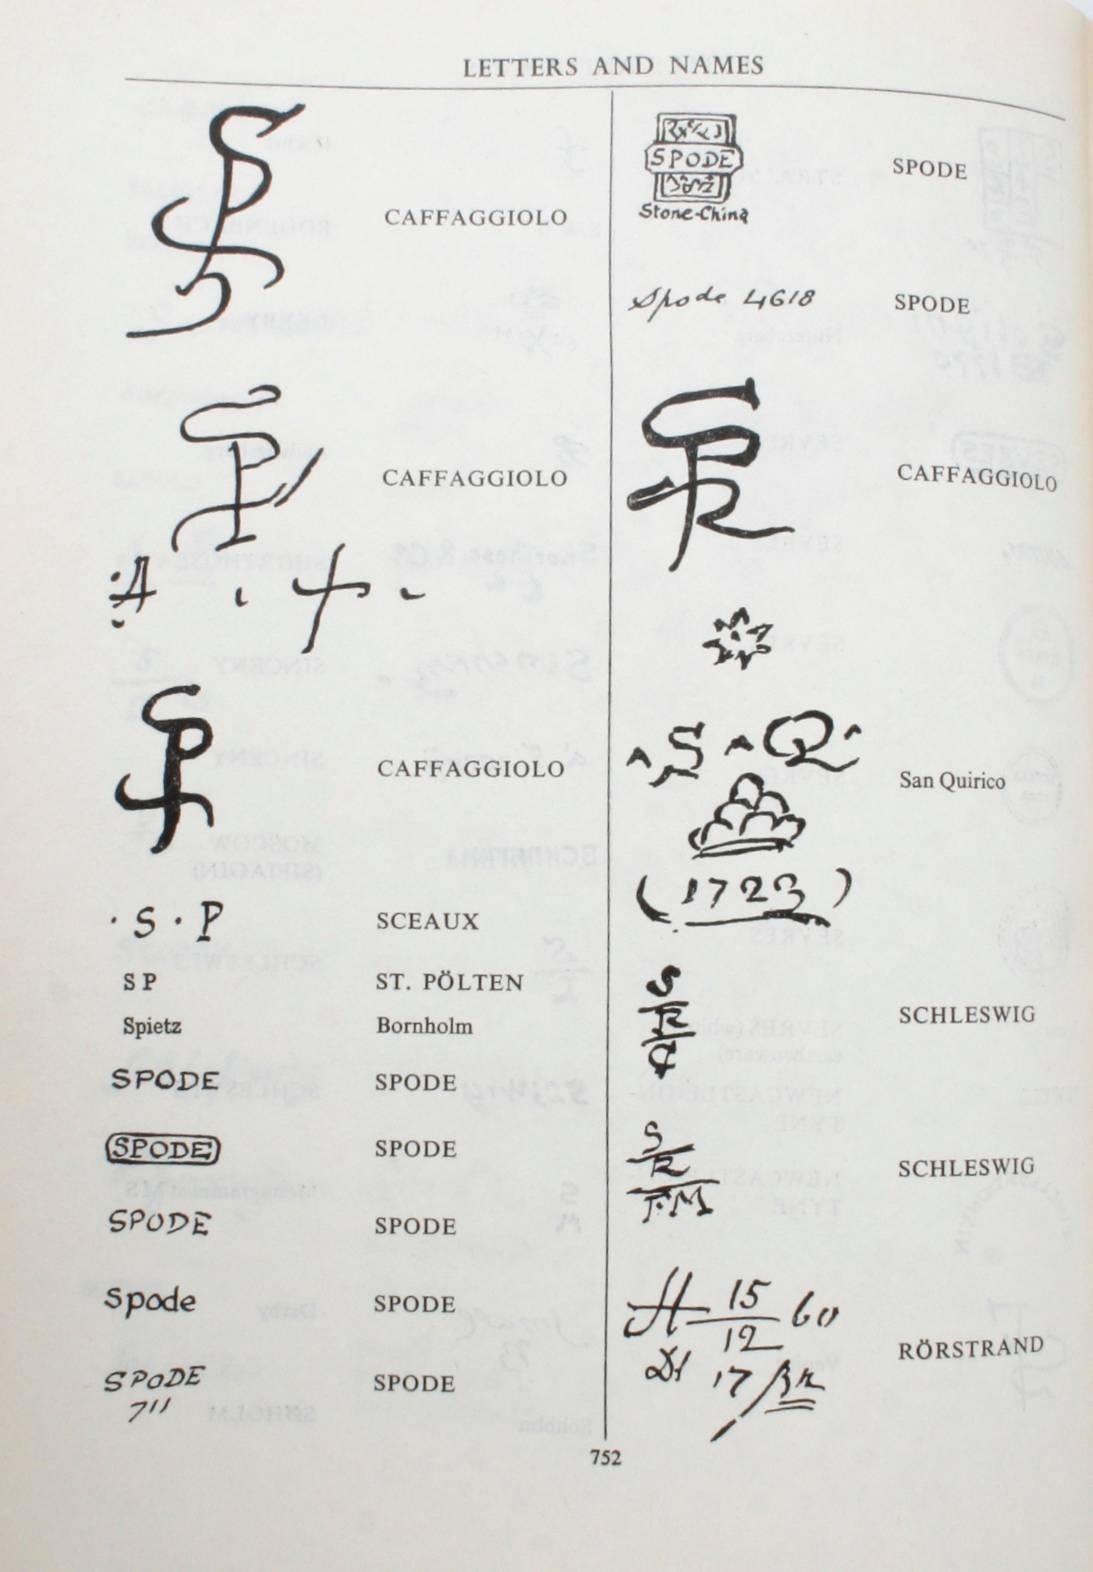 LETTERS AND NAMES
CAFFAGGIOLO
CAFFAGGIOLO
CAFFAGGIOLO
· S · P SCEAUX
S P ST. PÖLTEN
Spietz Bornholm
SPODE SPODE
SPODE SPODE
SPODE SPODE
Spode SPODE
SPODE SPODE
711
SPODE SPODE
Stone-China
Spode 4618 SPODE
CAFFAGGIOLO
S Q San Quirico
(1723)
S SCHLESWIG
R
S SCHLESWIG
R
F.M
15 60 RÖRSTRAND
12
17
752